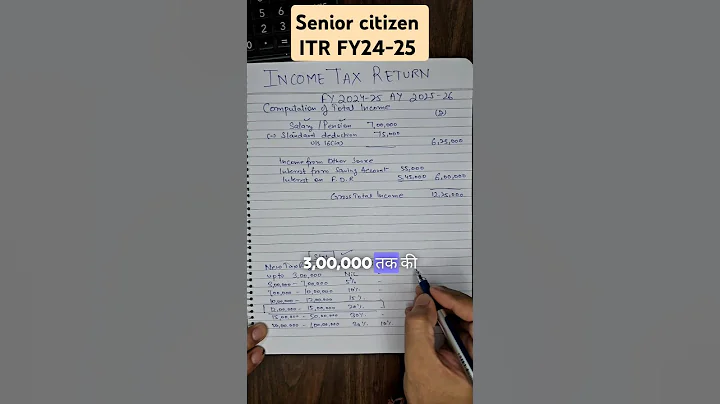 Senior citizen
ITR FY24-25
INCOME TAX RETURN
FY 2024-25 AY 2025-26
Computation of Total Income
Salary / Pension 7,00,000
Standard deduction 75,000
6,25,000
Income from Other
Interest from Saving Account 55,000
Interest on F.D.R 5,45,000 6,00,000
Gross Total Income 12,25,000
3,00,000 तक की
New Tax
upto 3,00,000 NIL
3,00,000 - 7,00,000 5% -
7,00,000 - 10,00,000 10% -
10,00,000 - 12,00,000 15%
12,00,000 - 15,00,000 20%
15,00,000 - 50,00,000 30% -
50,00,000 - 100,00,000 30% 10%